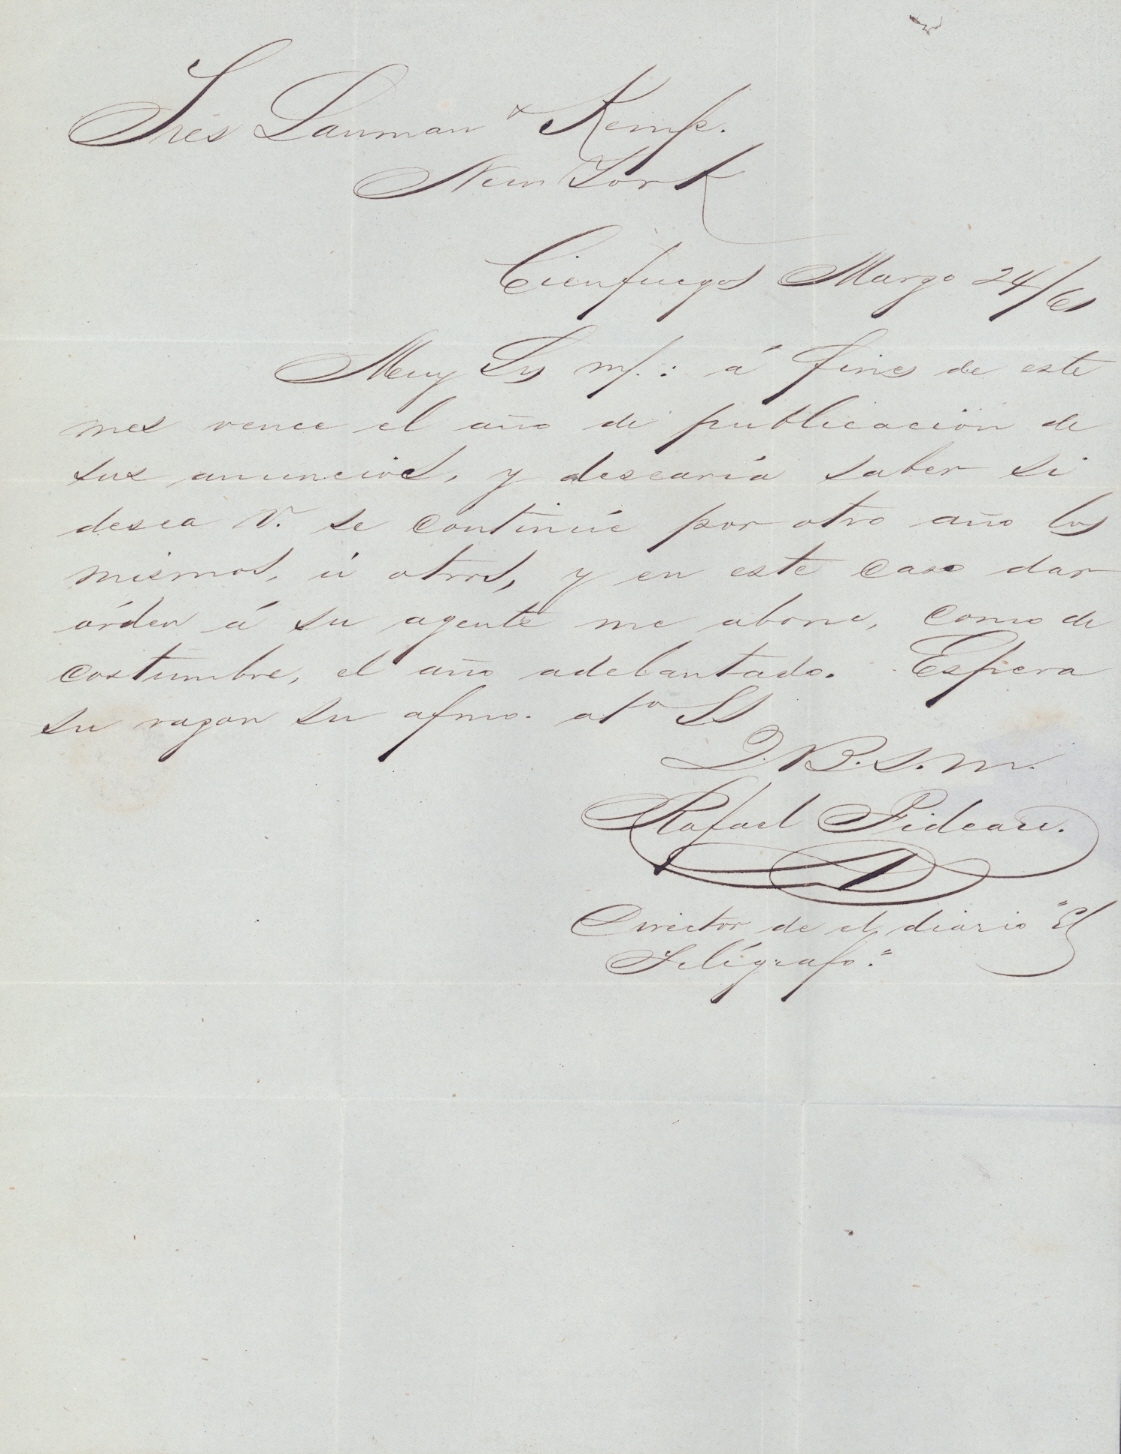 Sres Lanman & Kemp.
New York
Cienfuegos Marzo 24/61
Muy Srs ms.: á fines de este
mes vence el año de publicacion de
sus anuncios, y desearía saber si
desea V. se continúe por otro año los
mismos, ú otros, y en este caso dar
órden á su agente me abone, como de
costumbre, el año adelantado. Espera
su razon su afmo. ato SS
Q.B.S.M.
Rafael
Director de el diario "El
Telégrafo."